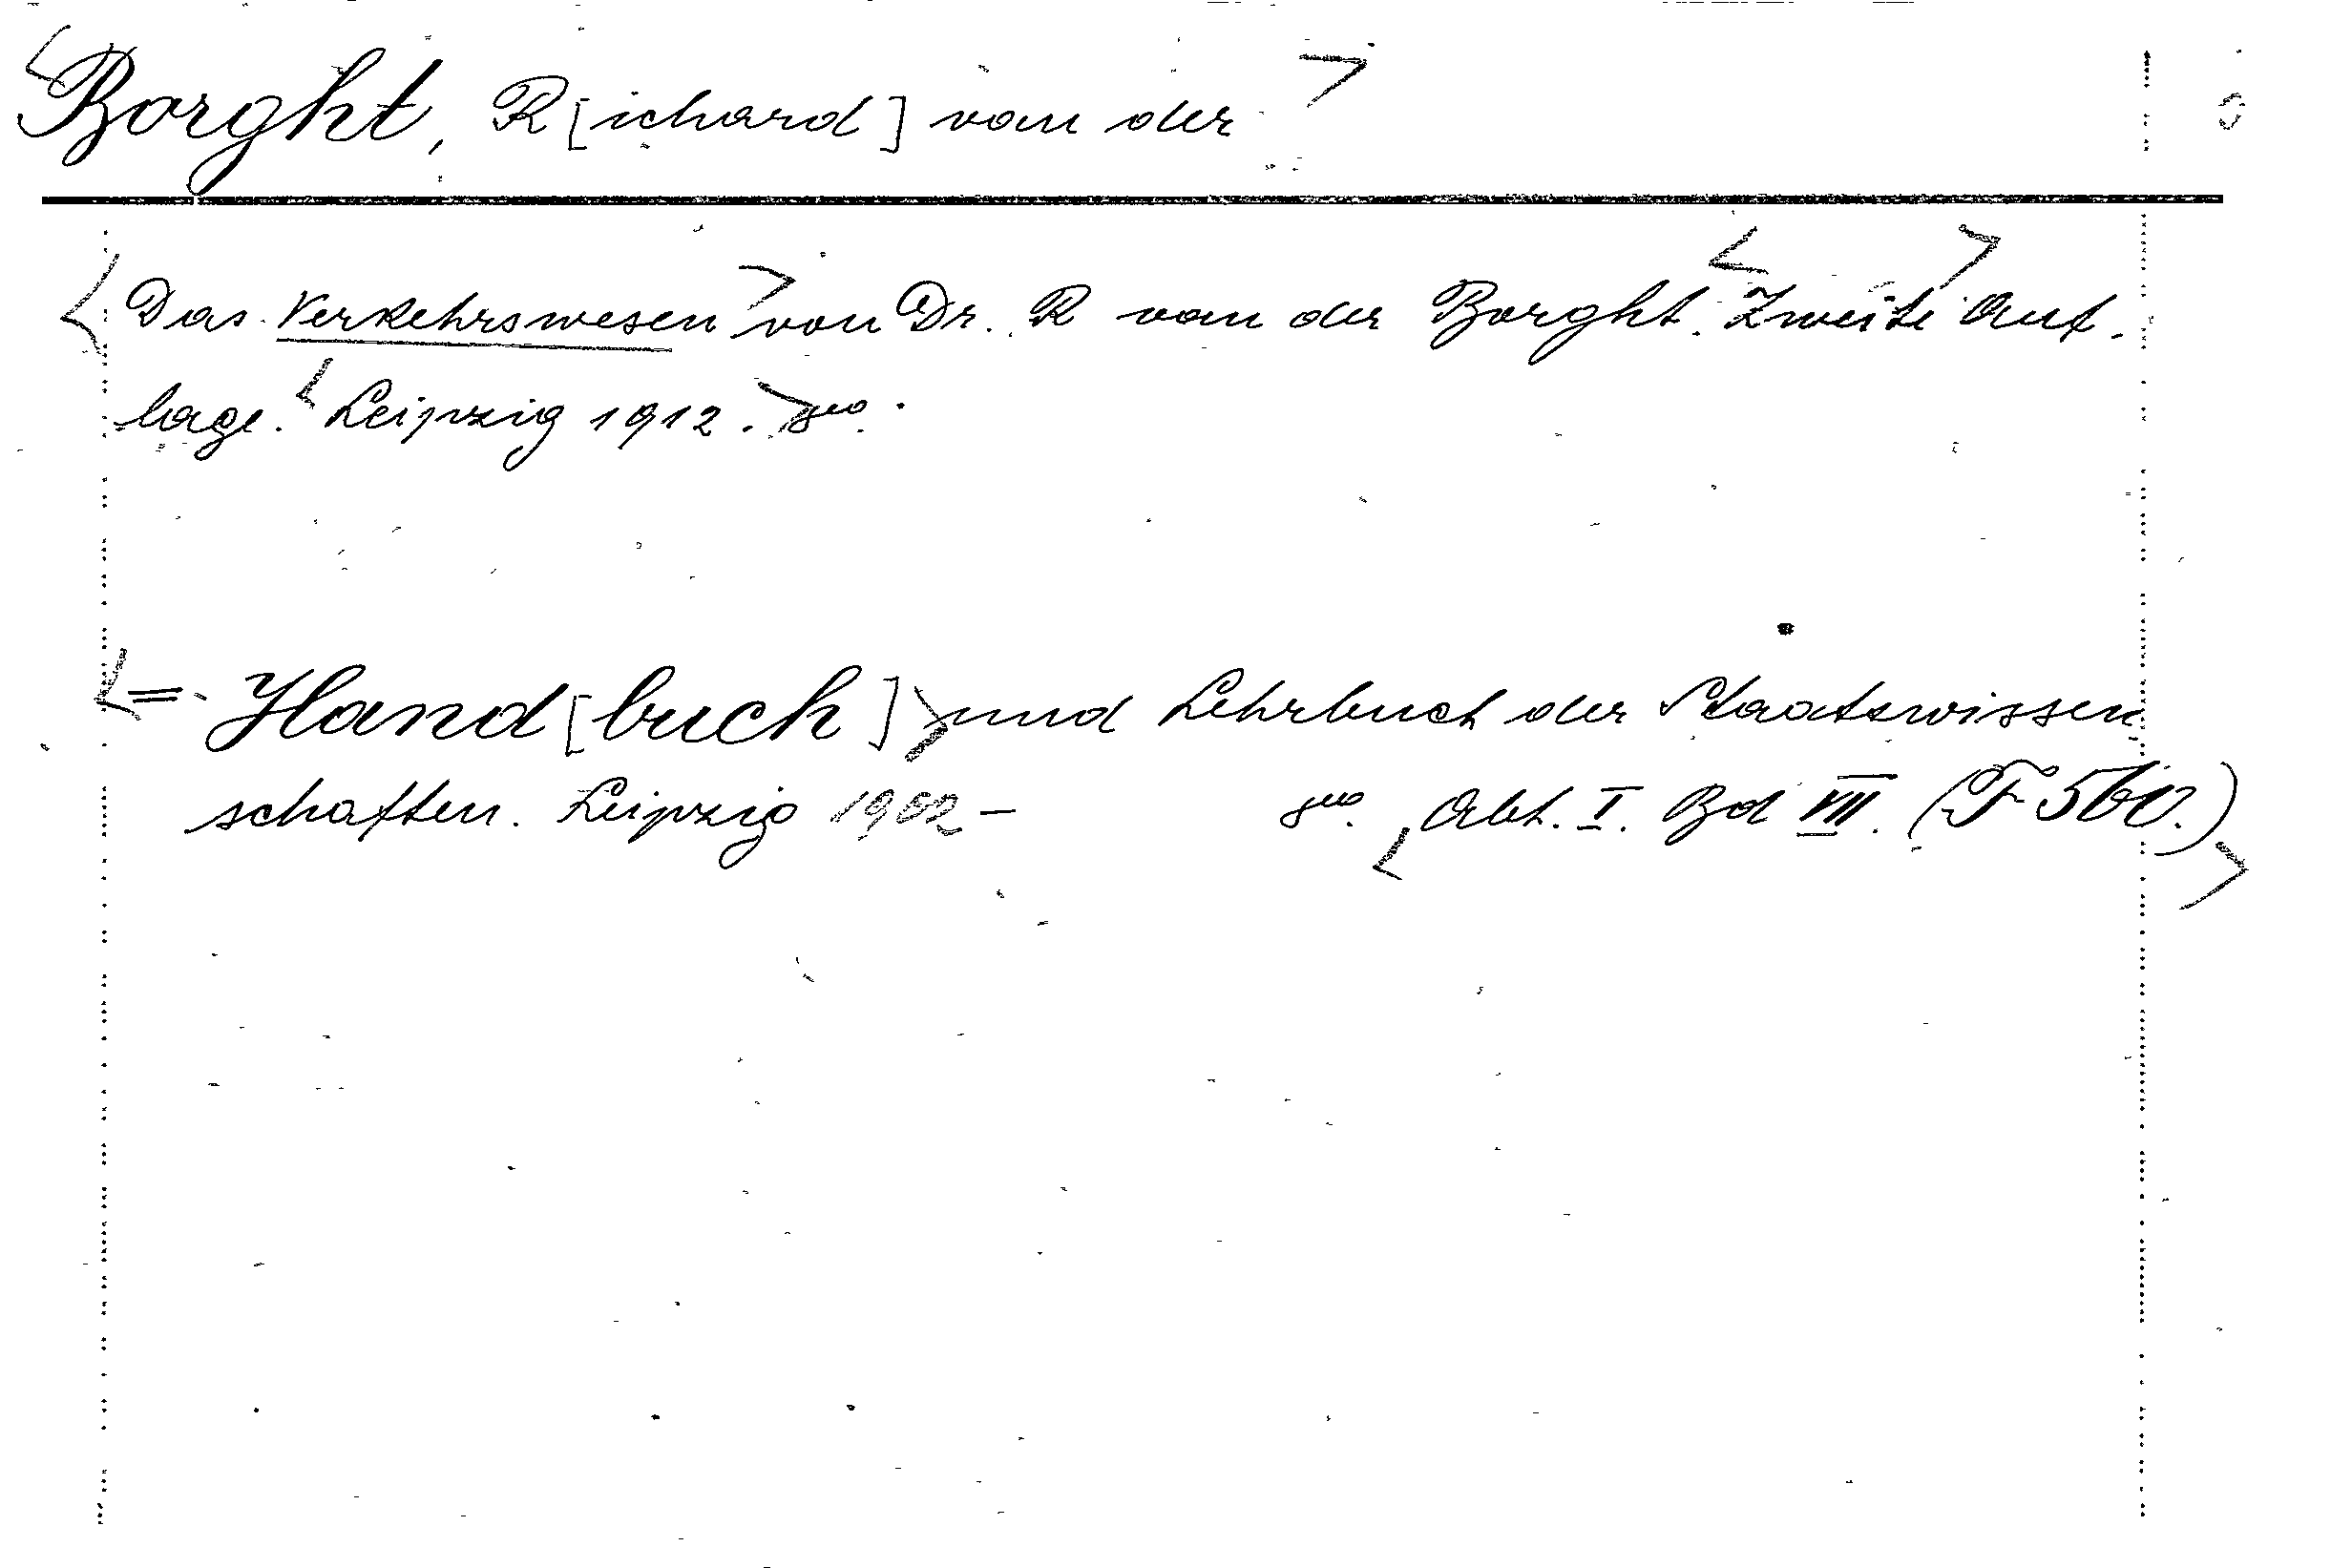 <Borght, R[ichard] van der>
<Das Verkehrswesen> von Dr. R van der Borght. <Zweite> Auf-
lage. <Leipzig 1912.> 8vo.
<= Hand[buch]> und Lehrbuch der Staatswissen
schaften. Leipzig 1902 - 8vo. <Abt. I. Bd VII. (F 560.)>